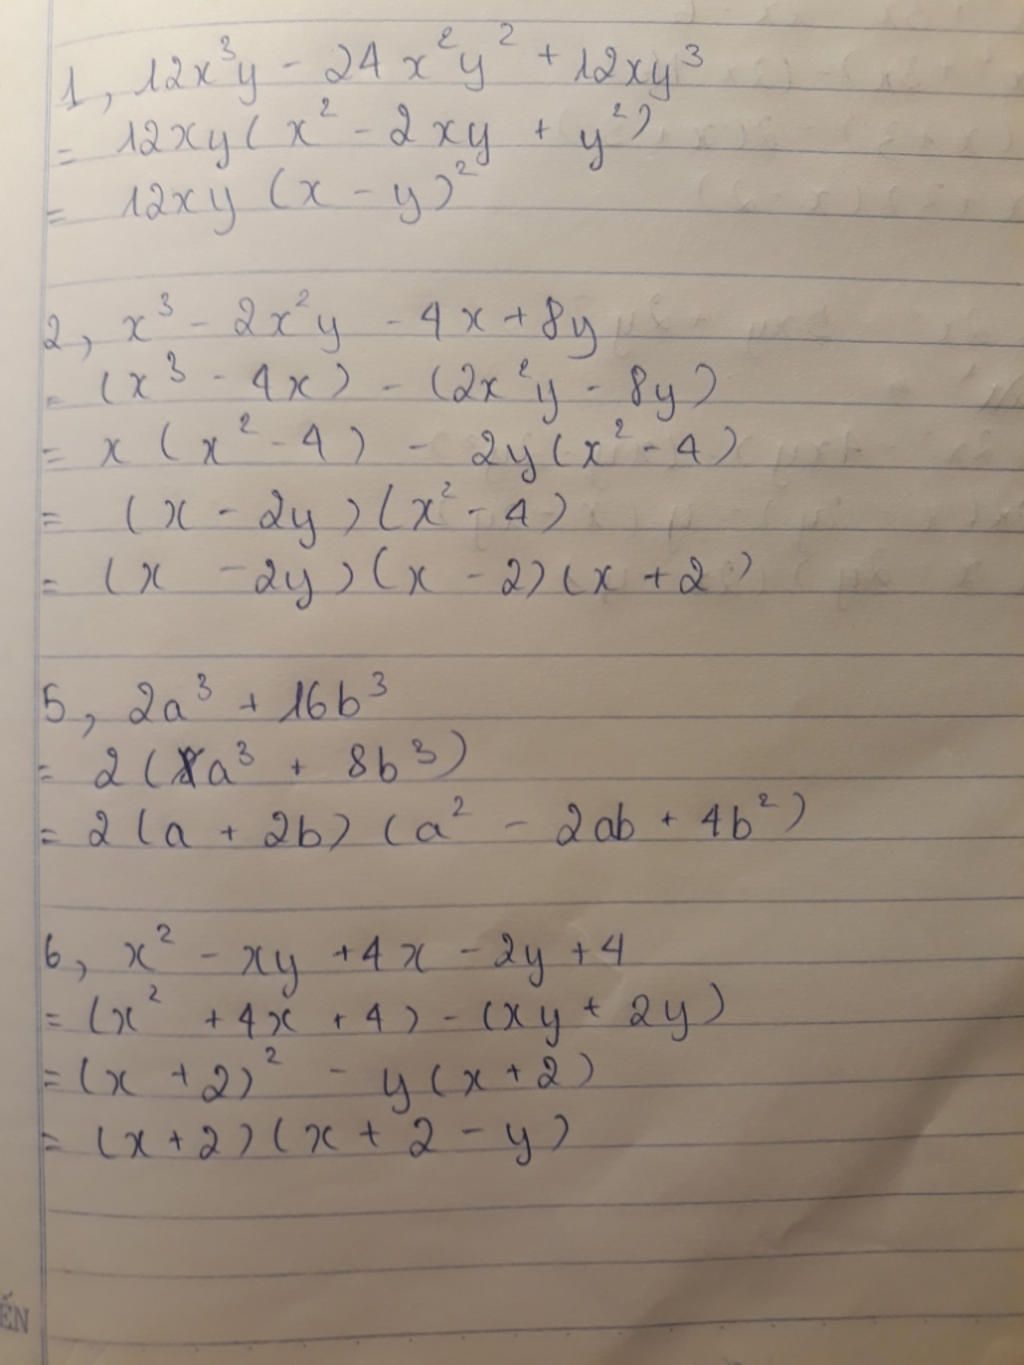 1, 12x³y - 24x²y² + 12xy³
= 12xy(x² - 2xy + y²)
= 12xy (x - y)²
2, x³ - 2x²y - 4x + 8y
= (x³ - 4x) - (2x²y - 8y)
= x (x² - 4) - 2y(x² - 4)
= (x - 2y)(x² - 4)
= (x - 2y)(x - 2)(x + 2)
5, 2a³ + 16b³
= 2(a³ + 8b³)
= 2(a + 2b)(a² - 2ab + 4b²)
6, x² - xy + 4x - 2y + 4
= (x² + 4x + 4) - (xy + 2y)
= (x + 2)² - y(x + 2)
= (x + 2)(x + 2 - y)
ẾN